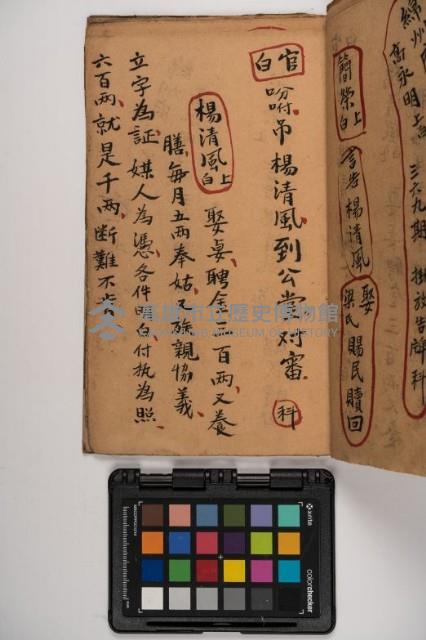 綿州
高永明上 三六九期 掛放告牌 科
簡榮上白 娶
告楊清風 梁氏賜民贖回
官白 吩咐吊楊清風到公堂对審 科
楊清風上白 娶妾聘金 百兩又養
膳每月五兩奉姑又族親恊義
立字為証媒人為憑各件明白付执為照
六百兩就是千兩断難不
高雄市立歷史博物館
KAOHSIUNG MUSEUM OF HISTORY
x-rite
colorchecker